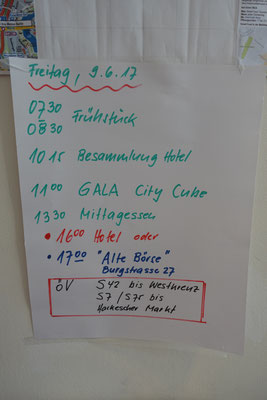 Freitag, 9.6.17
0730
0830 Frühstück
1015 Besammlung Hotel
1100 GALA City Cube
1330 Mittagessen
• 1600 Hotel oder
• 1700 "Alte Börse"
Burgstrasse 27
ÖV S42 bis Westkreuz
S7 / S75 bis
Hackescher Markt